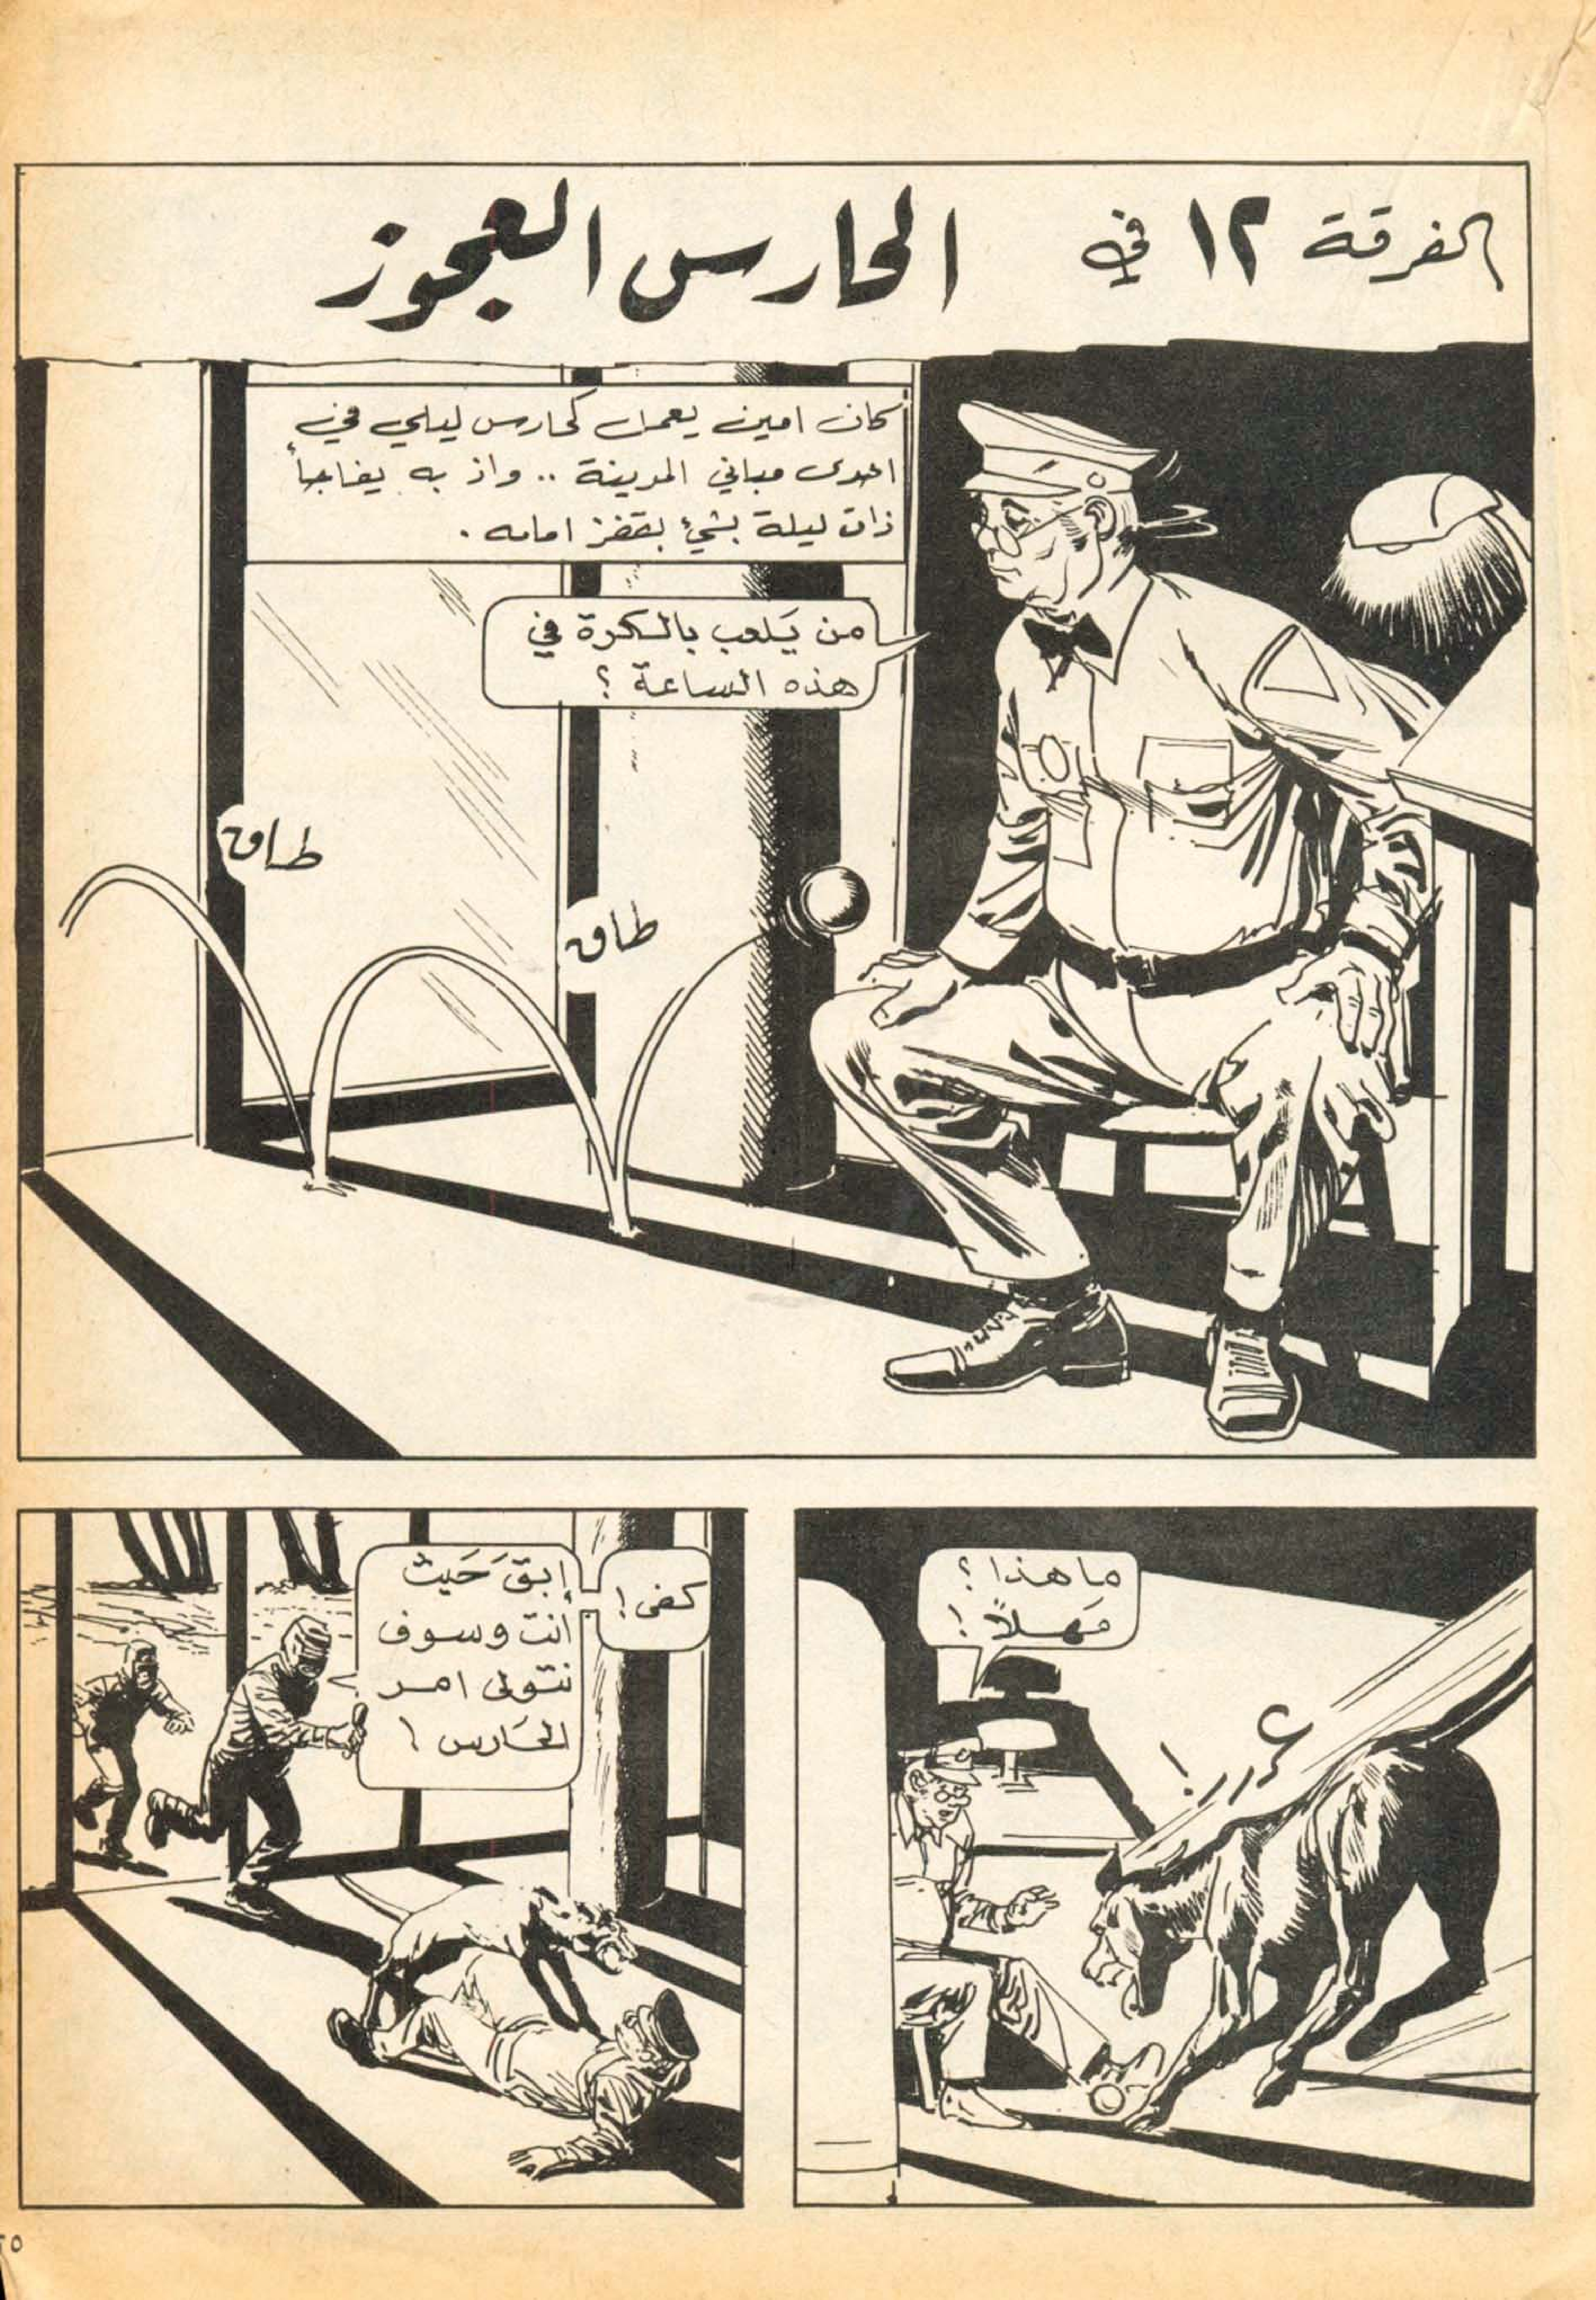 الفرقة ١٢ في الحارس العجوز
كان امين يعمل كحارس ليلي في
احدى مباني المدينة .. واذ به يفاجأ
ذات ليلة بشيء يقفز امامه .
من يَلعب بالكرة في
هذه الساعة ؟
طاق
طاق
ما هذا ؟
مَهلاً !
غررر !
كفى !
إبقَ حَيث
أنت وسوف
نتولى امر
الحَارس !